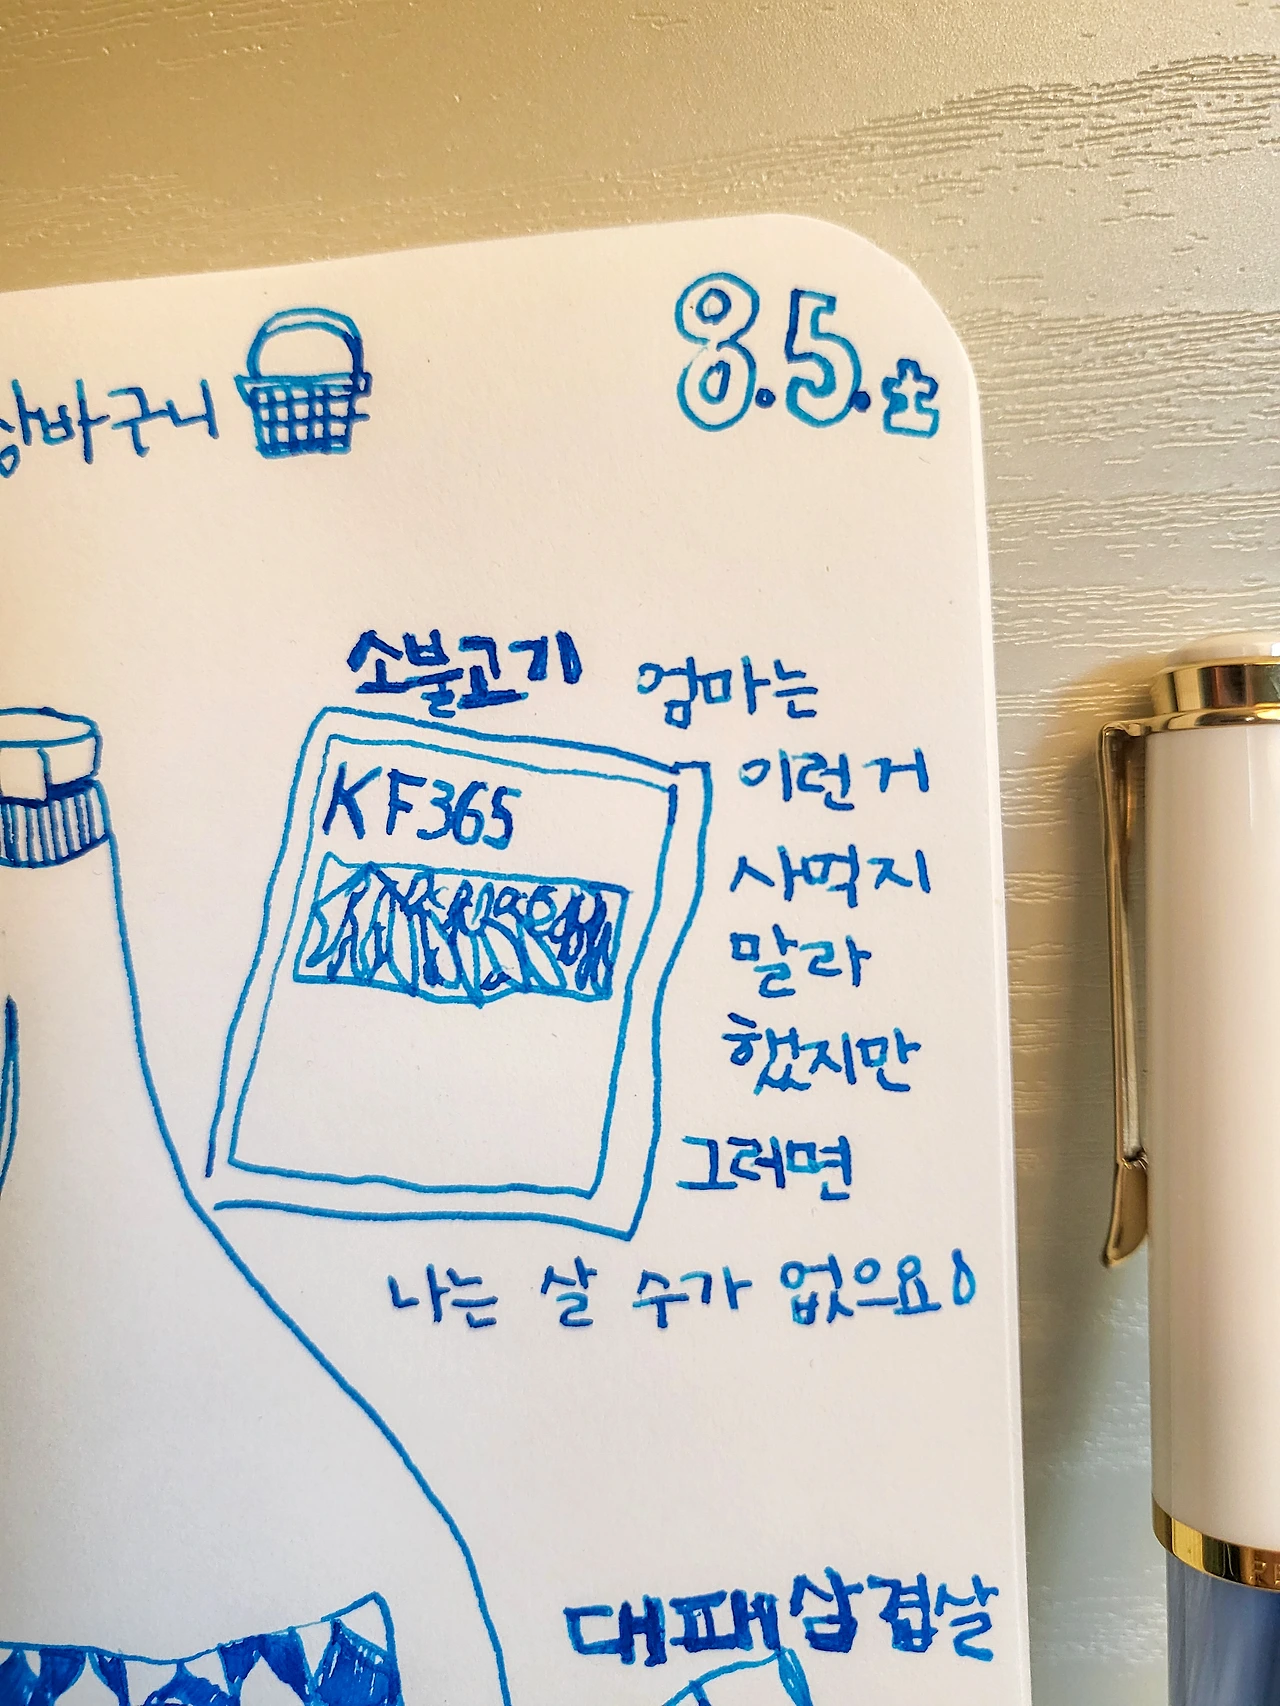 8.5.土
장바구니
소불고기
KF365
엄마는
이런거
사먹지
말라
했지만
그러면
나는 살 수가 없으요
대패삼겹살